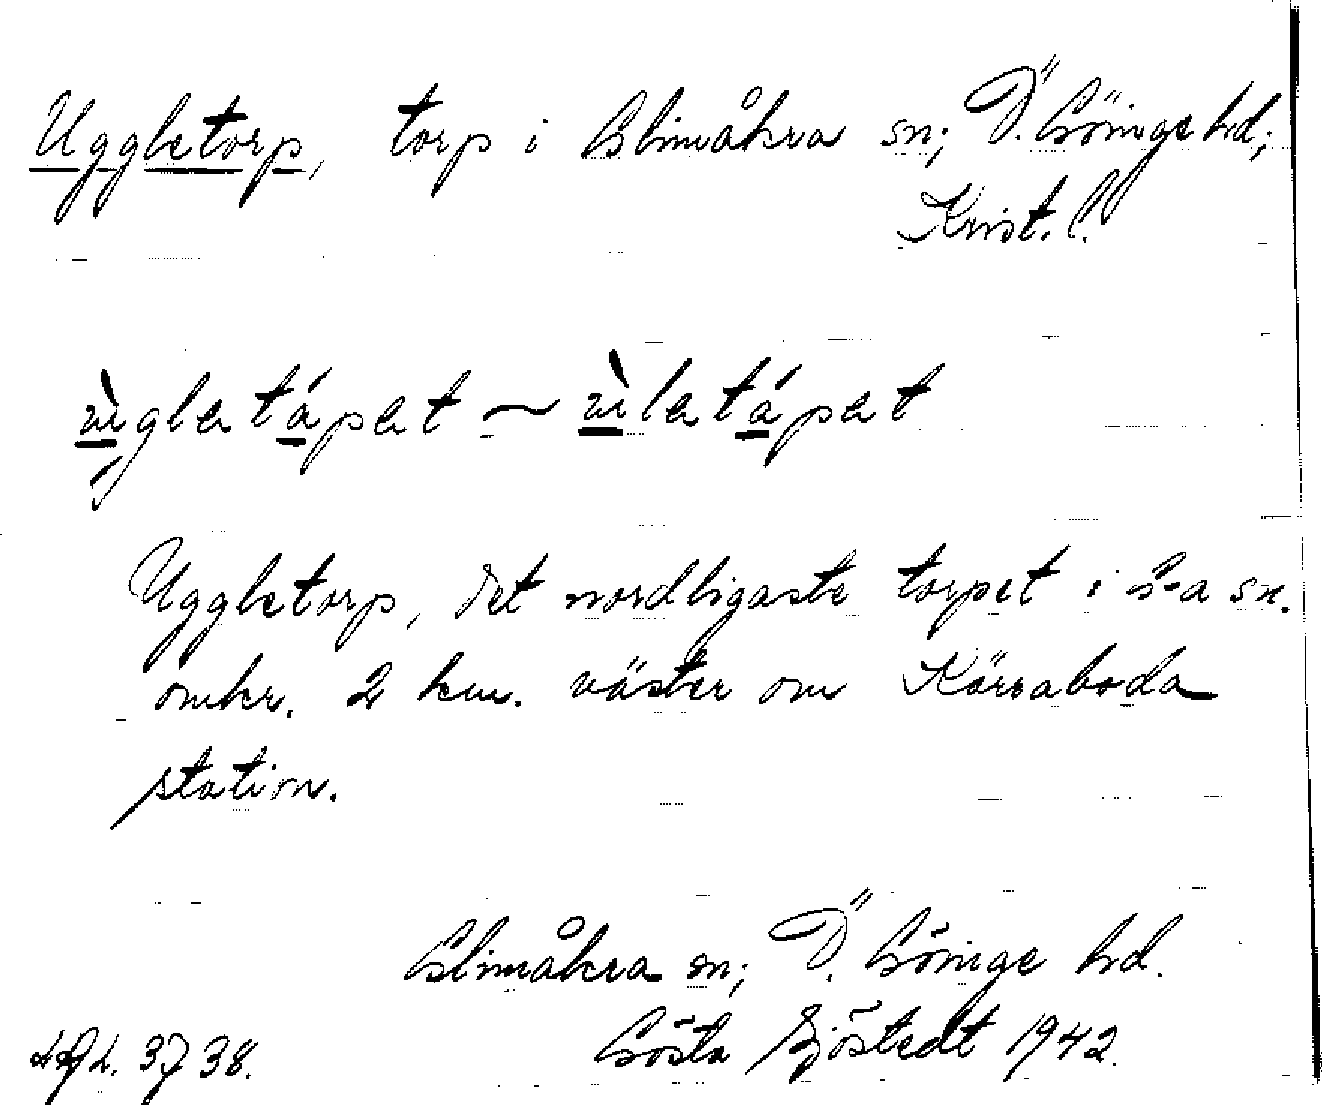 Uggletorp, torp i Glimåkra sn; Ö. Göinge hd;
Krist. l.
Uggletorp, det nordligaste torpet i G-a sn.
omkr. 2 km. väster om Kärraboda
station.
Glimåkra sn; Ö. Göinge hd.
Gösta Sjöstedt 1942.